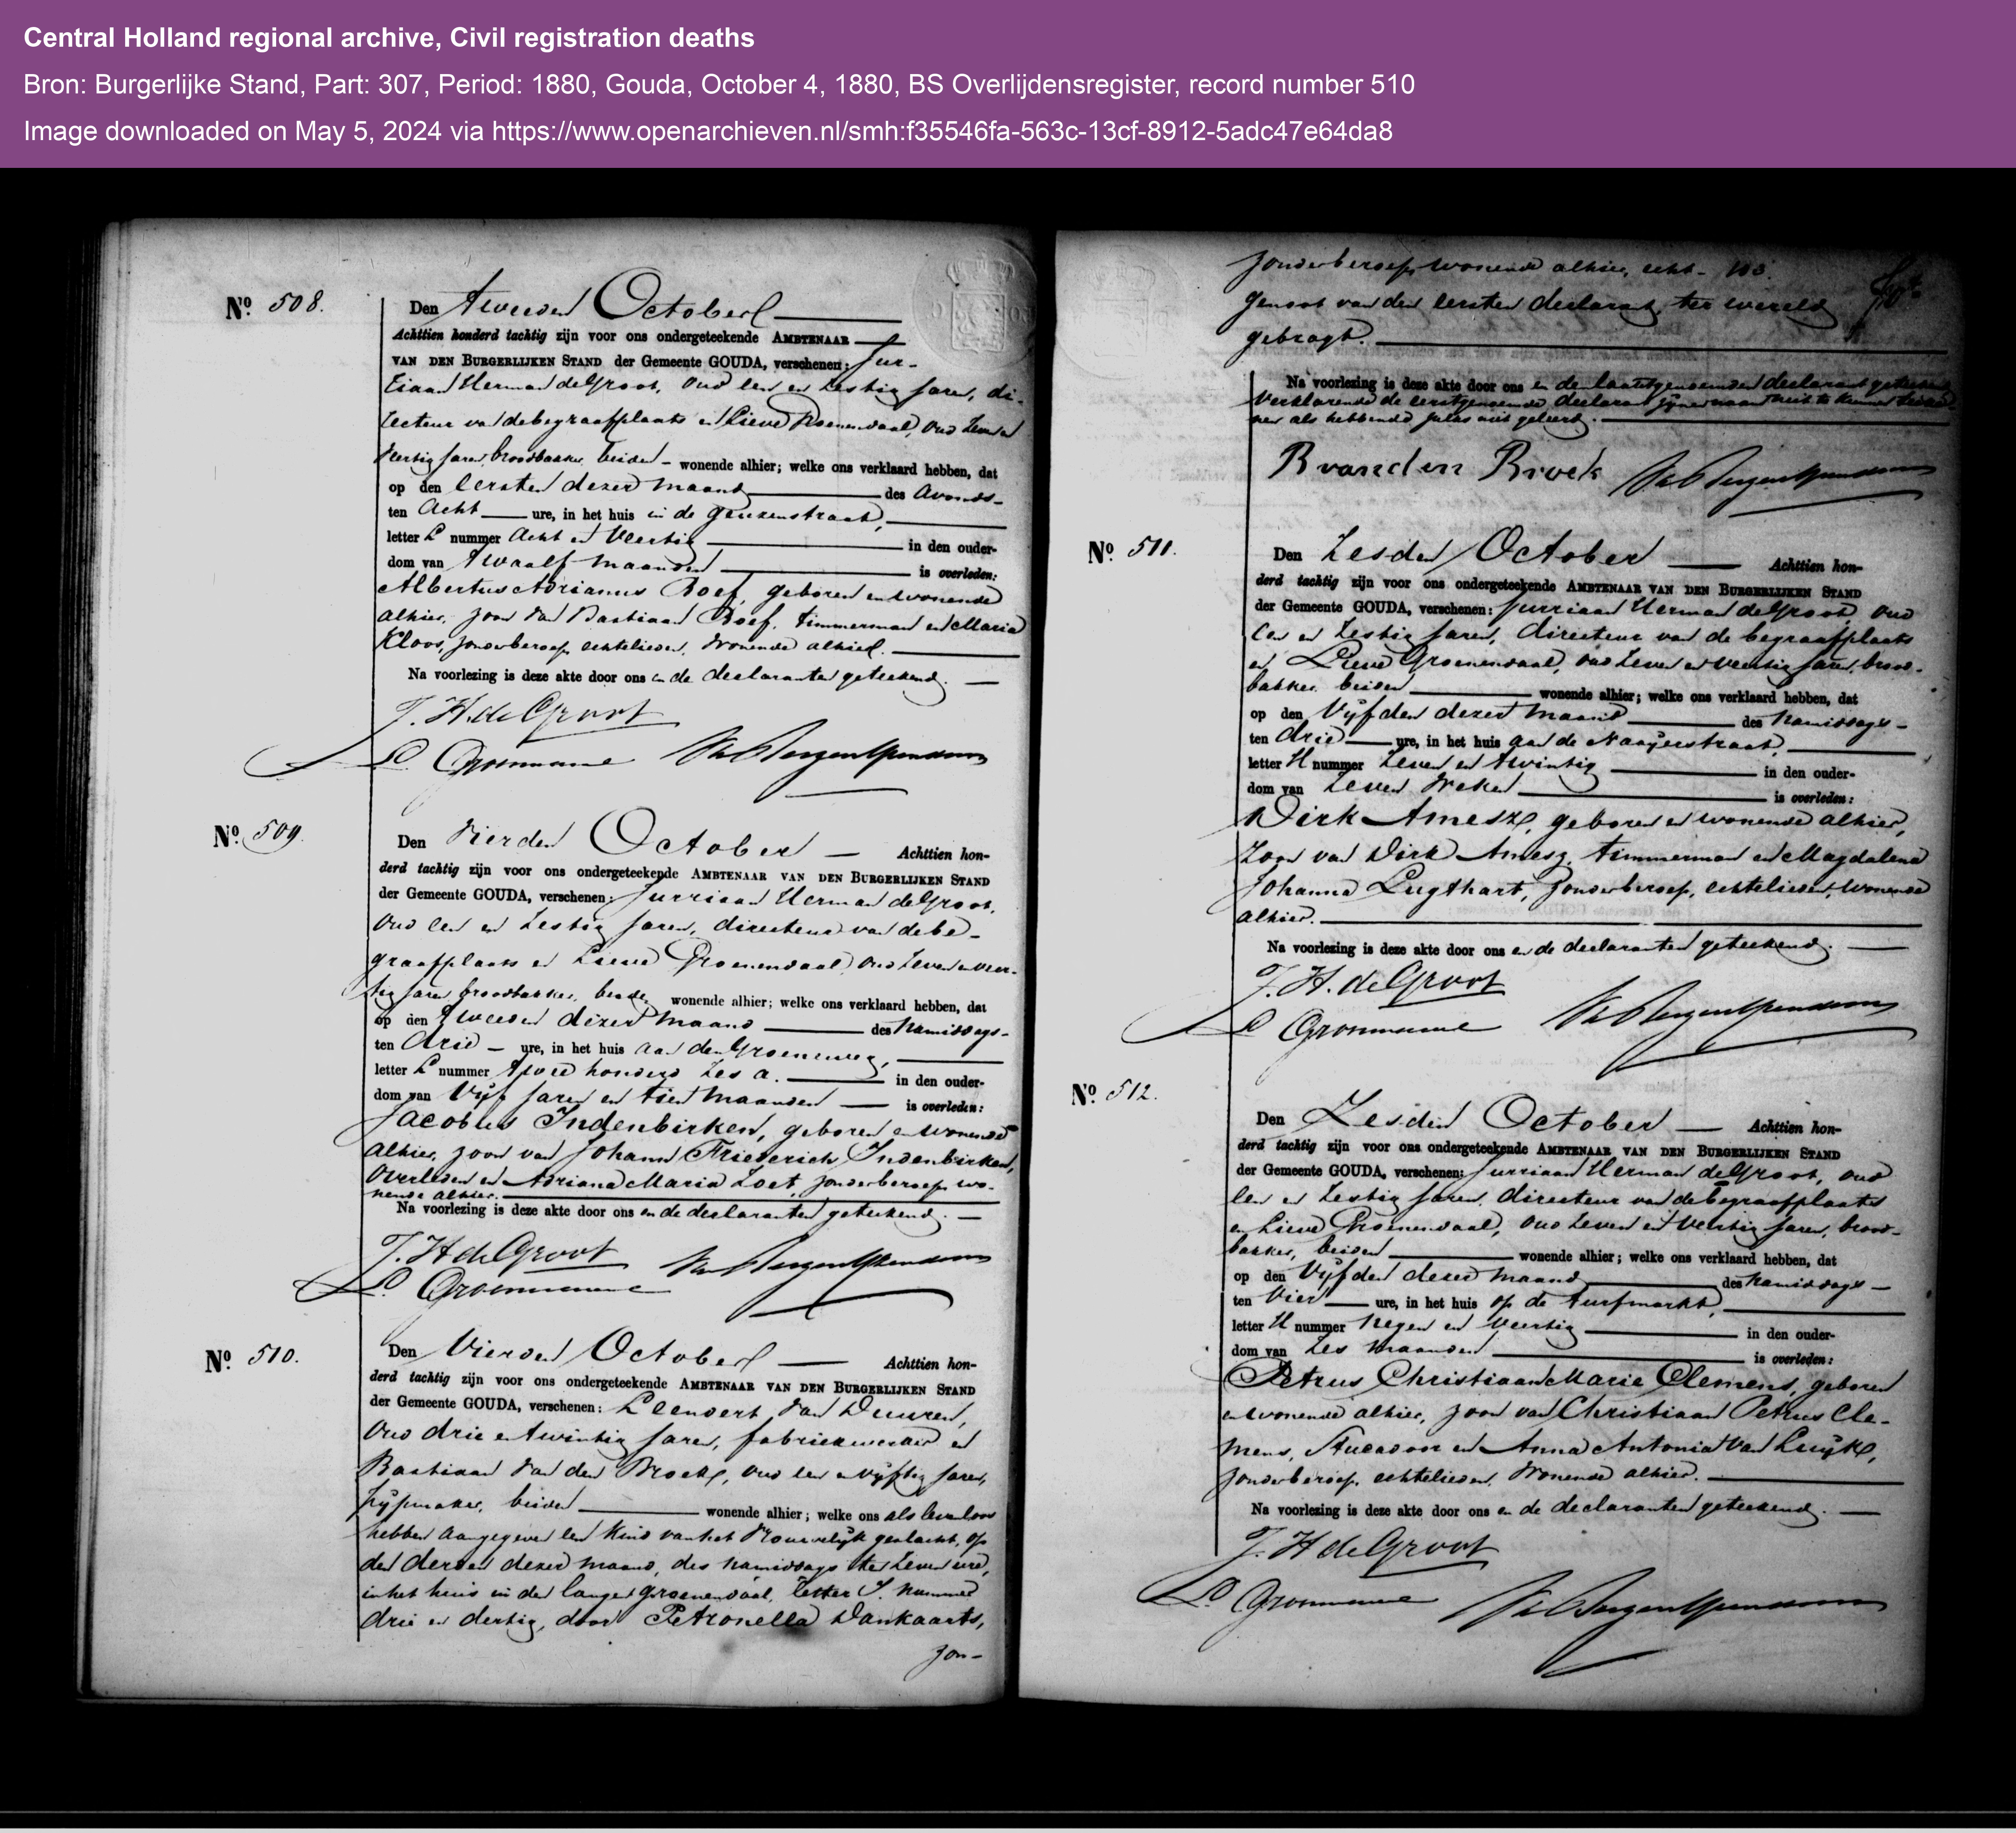 Central Holland regional archive, Civil registration deaths
Bron: Burgerlijke Stand, Part: 307, Period: 1880, Gouda, October 4, 1880, BS Overlijdensregister, record number 510
Image downloaded on May 5, 2024 via https://www.openarchieven.nl/smh:f35546fa-563c-13cf-8912-5adc47e64da8
No. 508.
Den Tweeden October
Achttien honderd tachtig zijn voor ons ondergeteekende AMBTENAAR
VAN DEN BURGERLIJKEN STAND der Gemeente GOUDA, verschenen: Jur-
riaan Herman de Groot, oud een en zestig jaren, di-
recteur van de begraafplaats en Lieve Groenendaal, oud zeven en
veertig jaren, broodbakker, beiden wonende alhier; welke ons verklaard hebben, dat
op den eersten dezer maand des avonds
ten Acht ure, in het huis in de Geuzenstraat,
letter L nummer acht en veertig in den ouder-
dom van twaalf maanden is overleden:
Albertus Adrianus Boef, geboren en wonende
alhier, zoon van Bastiaan Boef, timmerman en Maria
Kloos, zonder beroep, echtelieden, wonende alhier.
Na voorlezing is deze akte door ons en de declaranten geteekend.
J. H. de Groot
L. Groenendaal
No. 509.
Den Vierden October Achttien hon-
derd tachtig zijn voor ons ondergeteekende AMBTENAAR VAN DEN BURGERLIJKEN STAND
der Gemeente GOUDA, verschenen: Jurriaan Herman de Groot,
oud een en zestig jaren, directeur van de be-
graafplaats en Lieve Groenendaal, oud zeven en veer-
tig jaren, broodbakker, beiden wonende alhier; welke ons verklaard hebben, dat
op den tweeden dezer maand des namiddags
ten drie ure, in het huis aan den Groeneweg,
letter L nummer twee honderd zes a. in den ouder-
dom van vijf jaren en tien maanden is overleden:
Jacobus Indenbirken, geboren en wonende
alhier, zoon van Johann Friederich Indenbirken,
overleden en Adriana Maria Zoet, zonder beroep, wo-
nende alhier.
Na voorlezing is deze akte door ons en de declaranten geteekend.
J. H. de Groot
L. Groenendaal
No. 510.
Den Vierden October Achttien hon-
derd tachtig zijn voor ons ondergeteekende AMBTENAAR VAN DEN BURGERLIJKEN STAND
der Gemeente GOUDA, verschenen: Leendert van Duuren,
oud drie en twintig jaren, fabriekwerker en
Bastiaan van den Broek, oud een en vijftig jaren,
pijpmaker, beiden wonende alhier; welke ons als levenloos
hebben aangegeven een kind van het vrouwelijk geslacht, op
den derden dezer maand, des namiddags ten zeven ure,
in het huis in den langen Groenendaal, letter I nummer
drie en dertig, door Petronella Dankaarts,
zon-
zonder beroep, wonende alhier, echt- 103.
genoot van den eersten declarant, ter wereld
gebragt.
Na voorlezing is deze akte door ons en den laatstgenoemden declarant geteekend
verklarende de eerstgenoemde declarant zijnen naam niet te kunnen teeke-
nen als hebbende zulks niet geleerd.
B van den Broek
No. 511.
Den Zesden October Achttien hon-
derd tachtig zijn voor ons ondergeteekende AMBTENAAR VAN DEN BURGERLIJKEN STAND
der Gemeente GOUDA, verschenen: Jurriaan Herman de Groot, oud
een en zestig jaren, directeur van de begraafplaats
en Lieve Groenendaal, oud zeven en veertig jaren, brood-
bakker, beiden wonende alhier; welke ons verklaard hebben, dat
op den vijfden dezer maand des namiddags
ten drie ure, in het huis aan de Naaijerstraat,
letter H nummer zeven en twintig in den ouder-
dom van zeven weken is overleden:
Dirk Amesz, geboren en wonende alhier,
zoon van Dirk Amesz, timmerman en Magdalena
Johanna Lugthart, zonder beroep, echtelieden, wonende
alhier.
Na voorlezing is deze akte door ons en de declaranten geteekend.
J. H. de Groot
L. Groenendaal
No. 512.
Den Zesden October Achttien hon-
derd tachtig zijn voor ons ondergeteekende AMBTENAAR VAN DEN BURGERLIJKEN STAND
der Gemeente GOUDA, verschenen: Jurriaan Herman de Groot, oud
een en zestig jaren, directeur van de begraafplaats
en Lieve Groenendaal, oud zeven en veertig jaren, brood-
bakker, beiden wonende alhier; welke ons verklaard hebben, dat
op den vijfden dezer maand des namiddags
ten vier ure, in het huis op de Turfmarkt,
letter H nummer negen en veertig in den ouder-
dom van zes maanden is overleden:
Petrus Christiaan Marie Clemens, geboren
en wonende alhier, zoon van Christiaan Petrus Cle-
mens, stucadoor en Anna Antonia van Luijk,
zonder beroep, echtelieden, wonende alhier.
Na voorlezing is deze akte door ons en de declaranten geteekend.
J. H. de Groot
L. Groenendaal